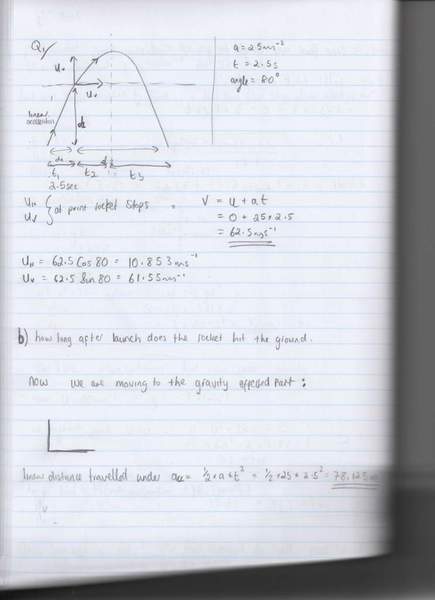 Q1/
a = 25ms⁻²
t = 2.5s
angle = 80°
Uv
UH
linear
acceleration
t1 t2 t3
2.5sec
UH
UV } at point rocket stops = V = u + at
= 0 + 25 × 2.5
= 62.5 ms⁻¹
UH = 62.5 Cos 80 = 10.853 ms⁻¹
UV = 62.5 Sin 80 = 61.55 ms⁻¹
b) how long after launch does the rocket hit the ground.
now we are moving to the gravity effected part :
linear distance travelled under acc = ½ × a × t² = ½ × 25 × 2.5² = 78.125m